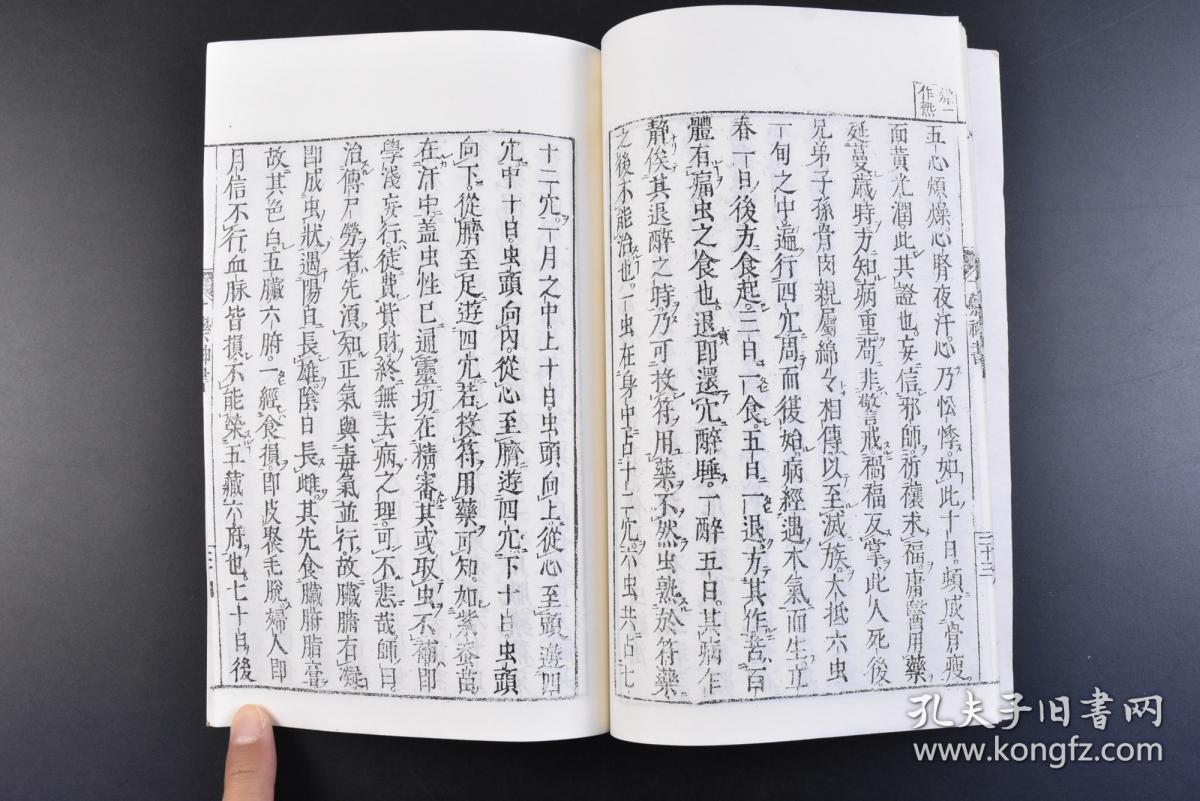 蒸一
作熱
五心煩燥。心腎夜汗。心乃忪悸。如此十日。頻成骨瘦。
面黄光潤。此其證也。妄信邪師。祈禳求福。庸醫用藥
延蔓歳時。方知病重。苟非警戒。禍福反掌。此人死後
兄弟子孫骨肉親屬綿々相傳以至滅族。大抵六虫
一旬之中。遍行四穴。周而復始。病經遇木氣而生。立
春一日。後方食起。三日一食。五日一退。方其作苦。百
體有痛。虫之食也。退即還穴醉睡。一醉五日。其病乍
静。俟其退醉之時。乃可投符用藥。不然虫熟於符藥
之後不能治也。一虫在身中。占十二穴。六虫共占七
十二穴。一月之中。上十日。虫頭向上。從心至頭。遊四
穴。中十日。虫頭向内。從心至臍。遊四穴。下十日。虫頭
向下。從臍至足。遊四穴。若投符用藥。可知。如紫蚕苗
在汗中。盖虫性已通靈。切在精審。其或取虫不補。即
學淺妄行。徒費貲財。終無去病之理。可不悲哉。師曰。
治傳尸勞者。先須知正氣與毒氣並行。故臓腑有凝。
即成虫状。遇陽日長雄。陰日長雌。其先食臓腑脂膏
故其色白。五臓六腑。一經食損。即皮聚毛脱。婦人即
月信不行。血脉皆損。不能榮五藏六府也。七十日後
三十三
孔夫子旧书网
www.kongfz.com